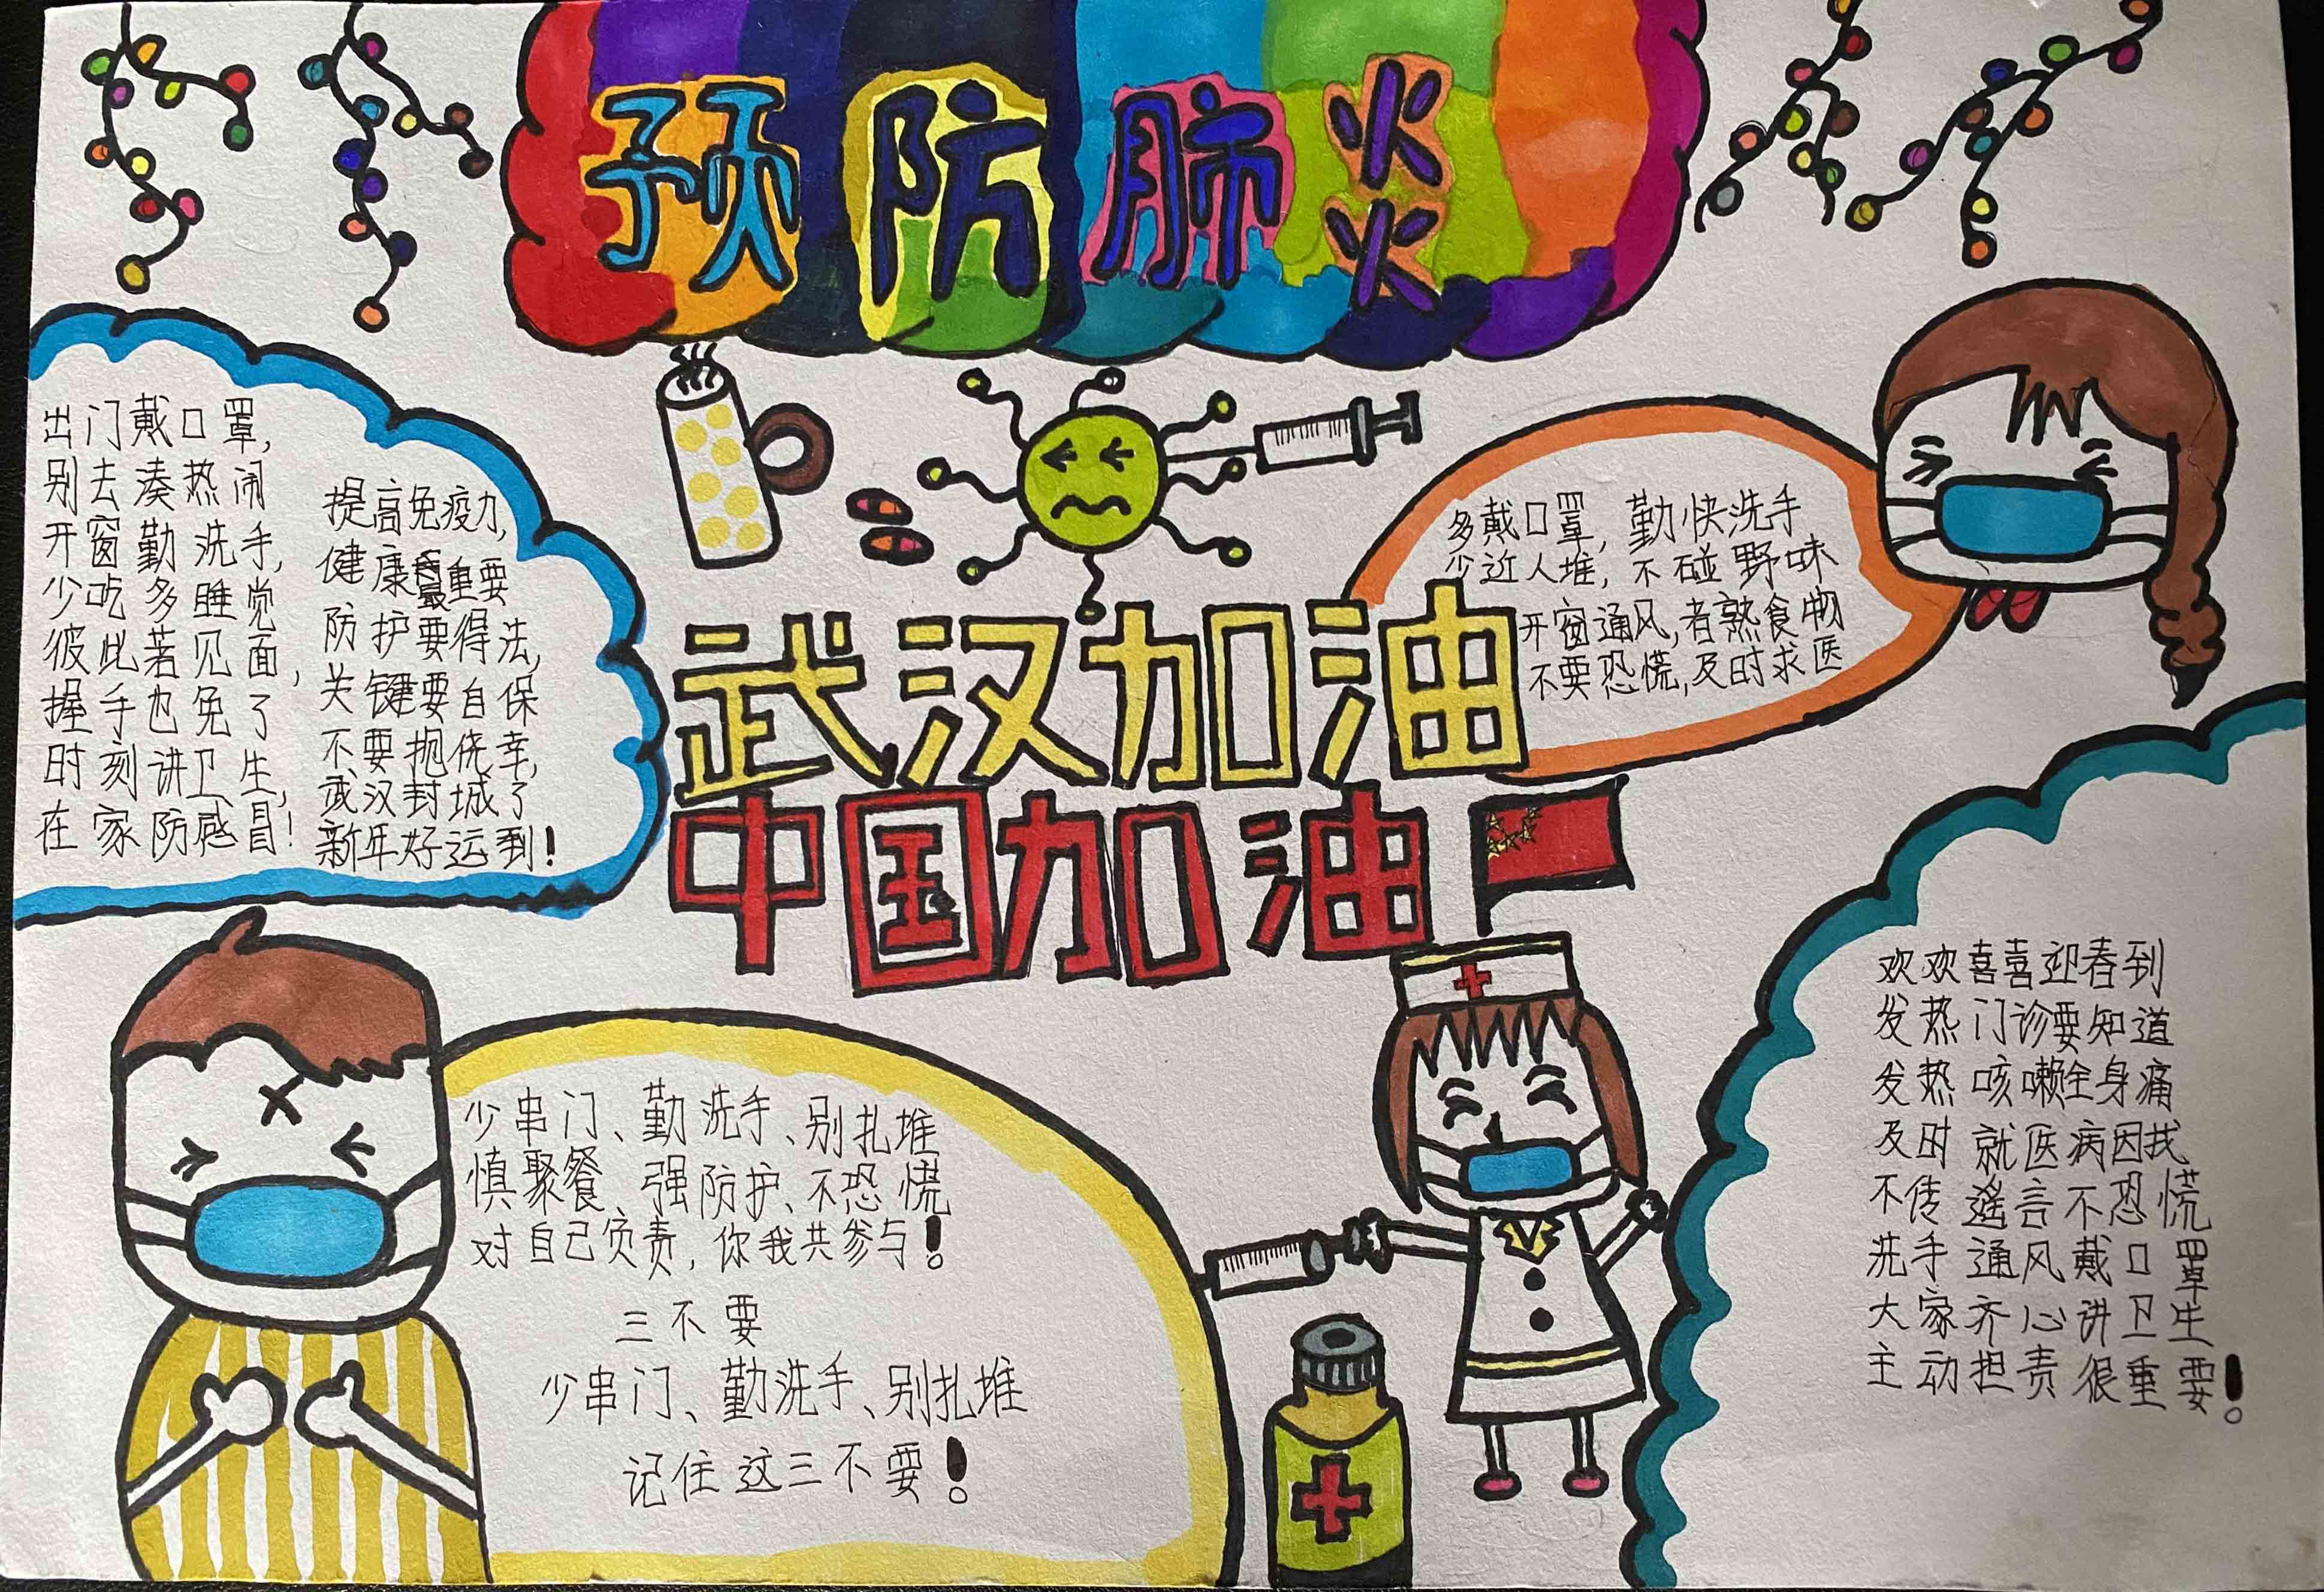 预防肺炎
出门戴口罩,
别去凑热闹
开窗勤洗手,
少吃多睡觉
彼此若见面,
握手也免了
时刻讲卫生,
在家防感冒!
提高免疫力,
健康最重要
防护要得法,
关键要自保
不要抱侥幸,
武汉封城了
新年好运到!
多戴口罩,勤快洗手
少近人堆,不碰野味
开窗通风,者熟食物
不要恐慌,及时求医
武汉加油
中国加油
少串门、勤洗手、别扎堆
慎聚餐、强防护、不恐慌
对自己负责,你我共参与!
三不要
少串门、勤洗手、别扎堆
记住这三不要!
欢欢喜喜迎春到
发热门诊要知道
发热咳嗽全身痛
及时就医病因找
不传谣言不恐慌
洗手通风戴口罩
大家齐心讲卫生
主动担责很重要!